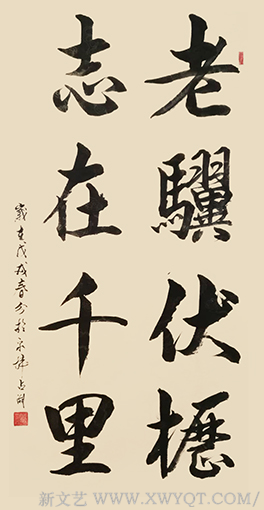 老驥伏櫪
志在千里
歲在戊戌春分於京
新文艺 WWW.XWYQT.COM